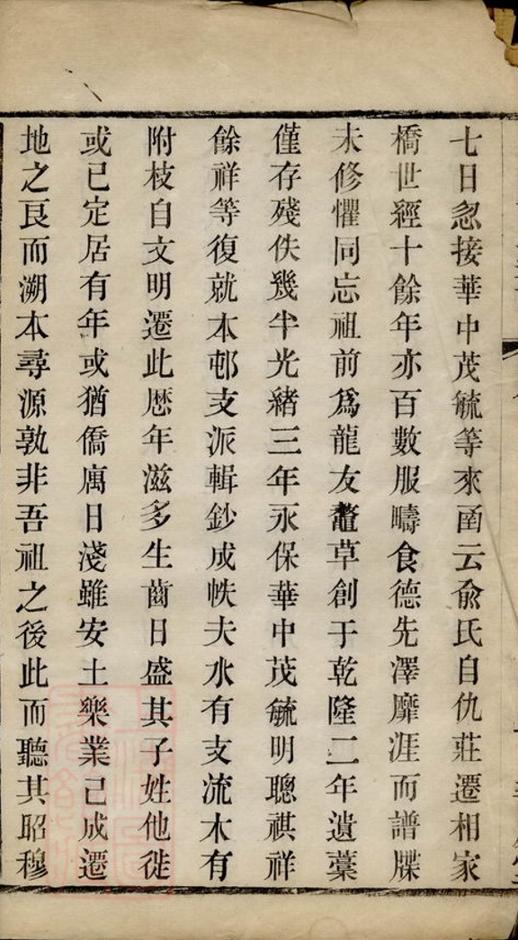 七日忽接華中茂毓等來函云俞氏自仇莊遷相家
橋世經十餘年亦百數服疇食德先澤靡涯而譜牒
未修懼同忘祖前爲龍友鼇草創于乾隆二年遺藁
僅存殘佚幾半光緒三年永保華中茂毓明聰祺祥
餘祥等復就本邨支派輯鈔成帙夫水有支流木有
附枝自文明遷此歷年滋多生齒日盛其子姓他徙
或已定居有年或猶僑寓日淺雖安土樂業已成遷
地之良而溯本尋源孰非吾祖之後此而聽其昭穆